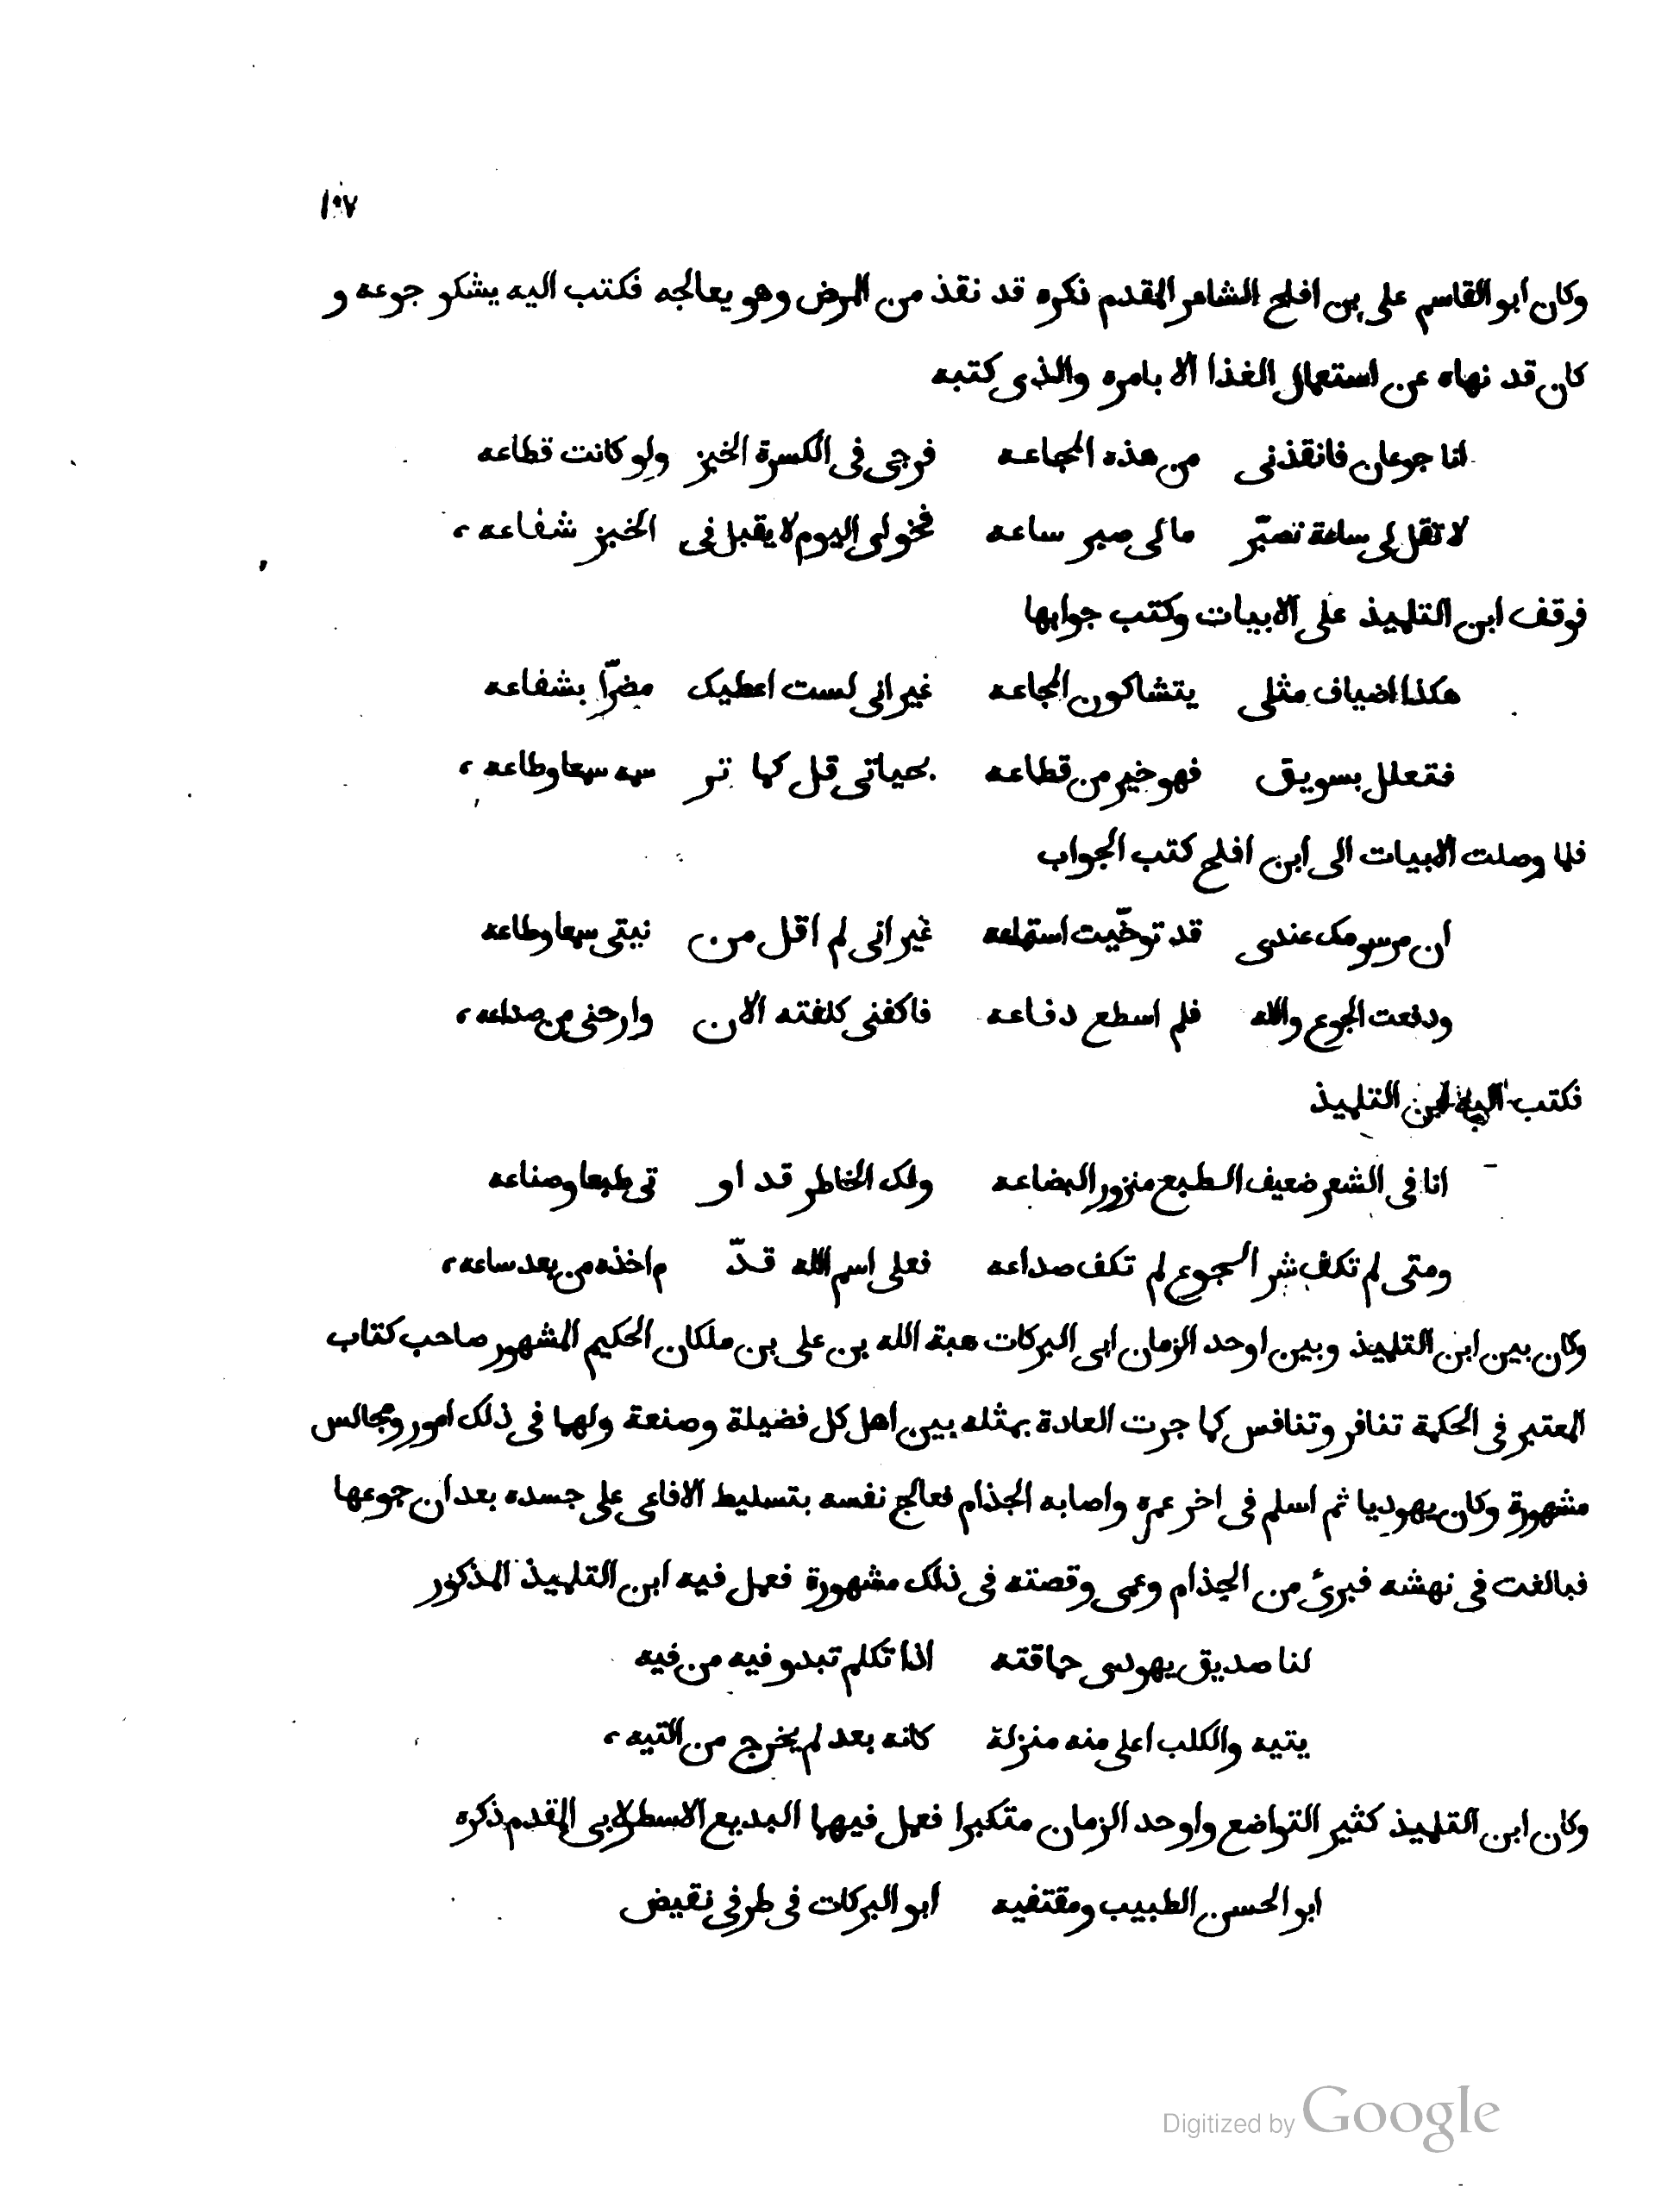 ١٠٧
وكان ابو القاسم على بن افلح الشاعر المقدم ذكره قد نقذ من المرض وهو يعالجه فكتب اليه يشكو جوعه و
كان قد نهاه عن استعمال الغذا الا بامره والذى كتبه
انا جوعان فانقذنى من هذه المجاعه فرجى فى الكسرة الخبز ولو كانت قطاعه
لا تقل لى ساعة تصبّر ما لى صبر ساعه فخولى اليوم لا يقبل فى الخبز شفاعه،
فوقف ابن التلميذ على الابيات وكتب جوابها
هكذا اضياف مثلى يتشاكون المجاعه غير انى لست اعطيك مضرّا بشفاعه
فتعلل بسويق فهو خير من قطاعه بحياتى قل كما تر سمه سمعا وطاعه،
فلما وصلت الابيات الى ابن افلح كتب الجواب
ان مرسومك عندى قد توخّيت استماعه غير انى لم اقل من نيتى سمعا وطاعه
ودفعت الجوع والله فلم اسطع دفاعه فاكفنى كلفته الان وارحنى من صداعه،
فكتب اليه ابن التلميذ
انا فى الشعر ضعيف الطبع منزور البضاعه ولك الخاطر قد او تى طبعا وصناعه
ومتى لم تكف شر الجوع لم تكف صداعه فعلى اسم الله قدّ م اخذه من بعد ساعه،
وكان بين ابن التلميذ وبين اوحد الزمان ابى البركات هبة الله بن على بن ملكان الحكيم المشهور صاحب كتاب
المعتبر فى الحكمة تنافر وتنافس كما جرت العادة بمثله بين اهل كل فضيلة وصنعة ولهما فى ذلك امور ومجالس
مشهورة وكان يهوديا ثم اسلم فى اخر عمره واصابه الجذام فعالج نفسه بتسليط الافاعى على جسده بعد ان جوعها
فبالغت فى نهشه فبرئ من الجذام وعمى وقصته فى ذلك مشهورة فعمل فيه ابن التلميذ المذكور
لنا صديق يهودى حماقته اذا تكلم تبدو فيه من فيه
يتيه والكلب اعلى منه منزلة كانه بعد لم يخرج من التيه،
وكان ابن التلميذ كثير التواضع واوحد الزمان متكبرا فعمل فيهما البديع الاسطرلابى المقدم ذكره
ابو الحسن الطبيب ومقتفيه ابو البركات فى طرفى نقيض
Digitized by Google